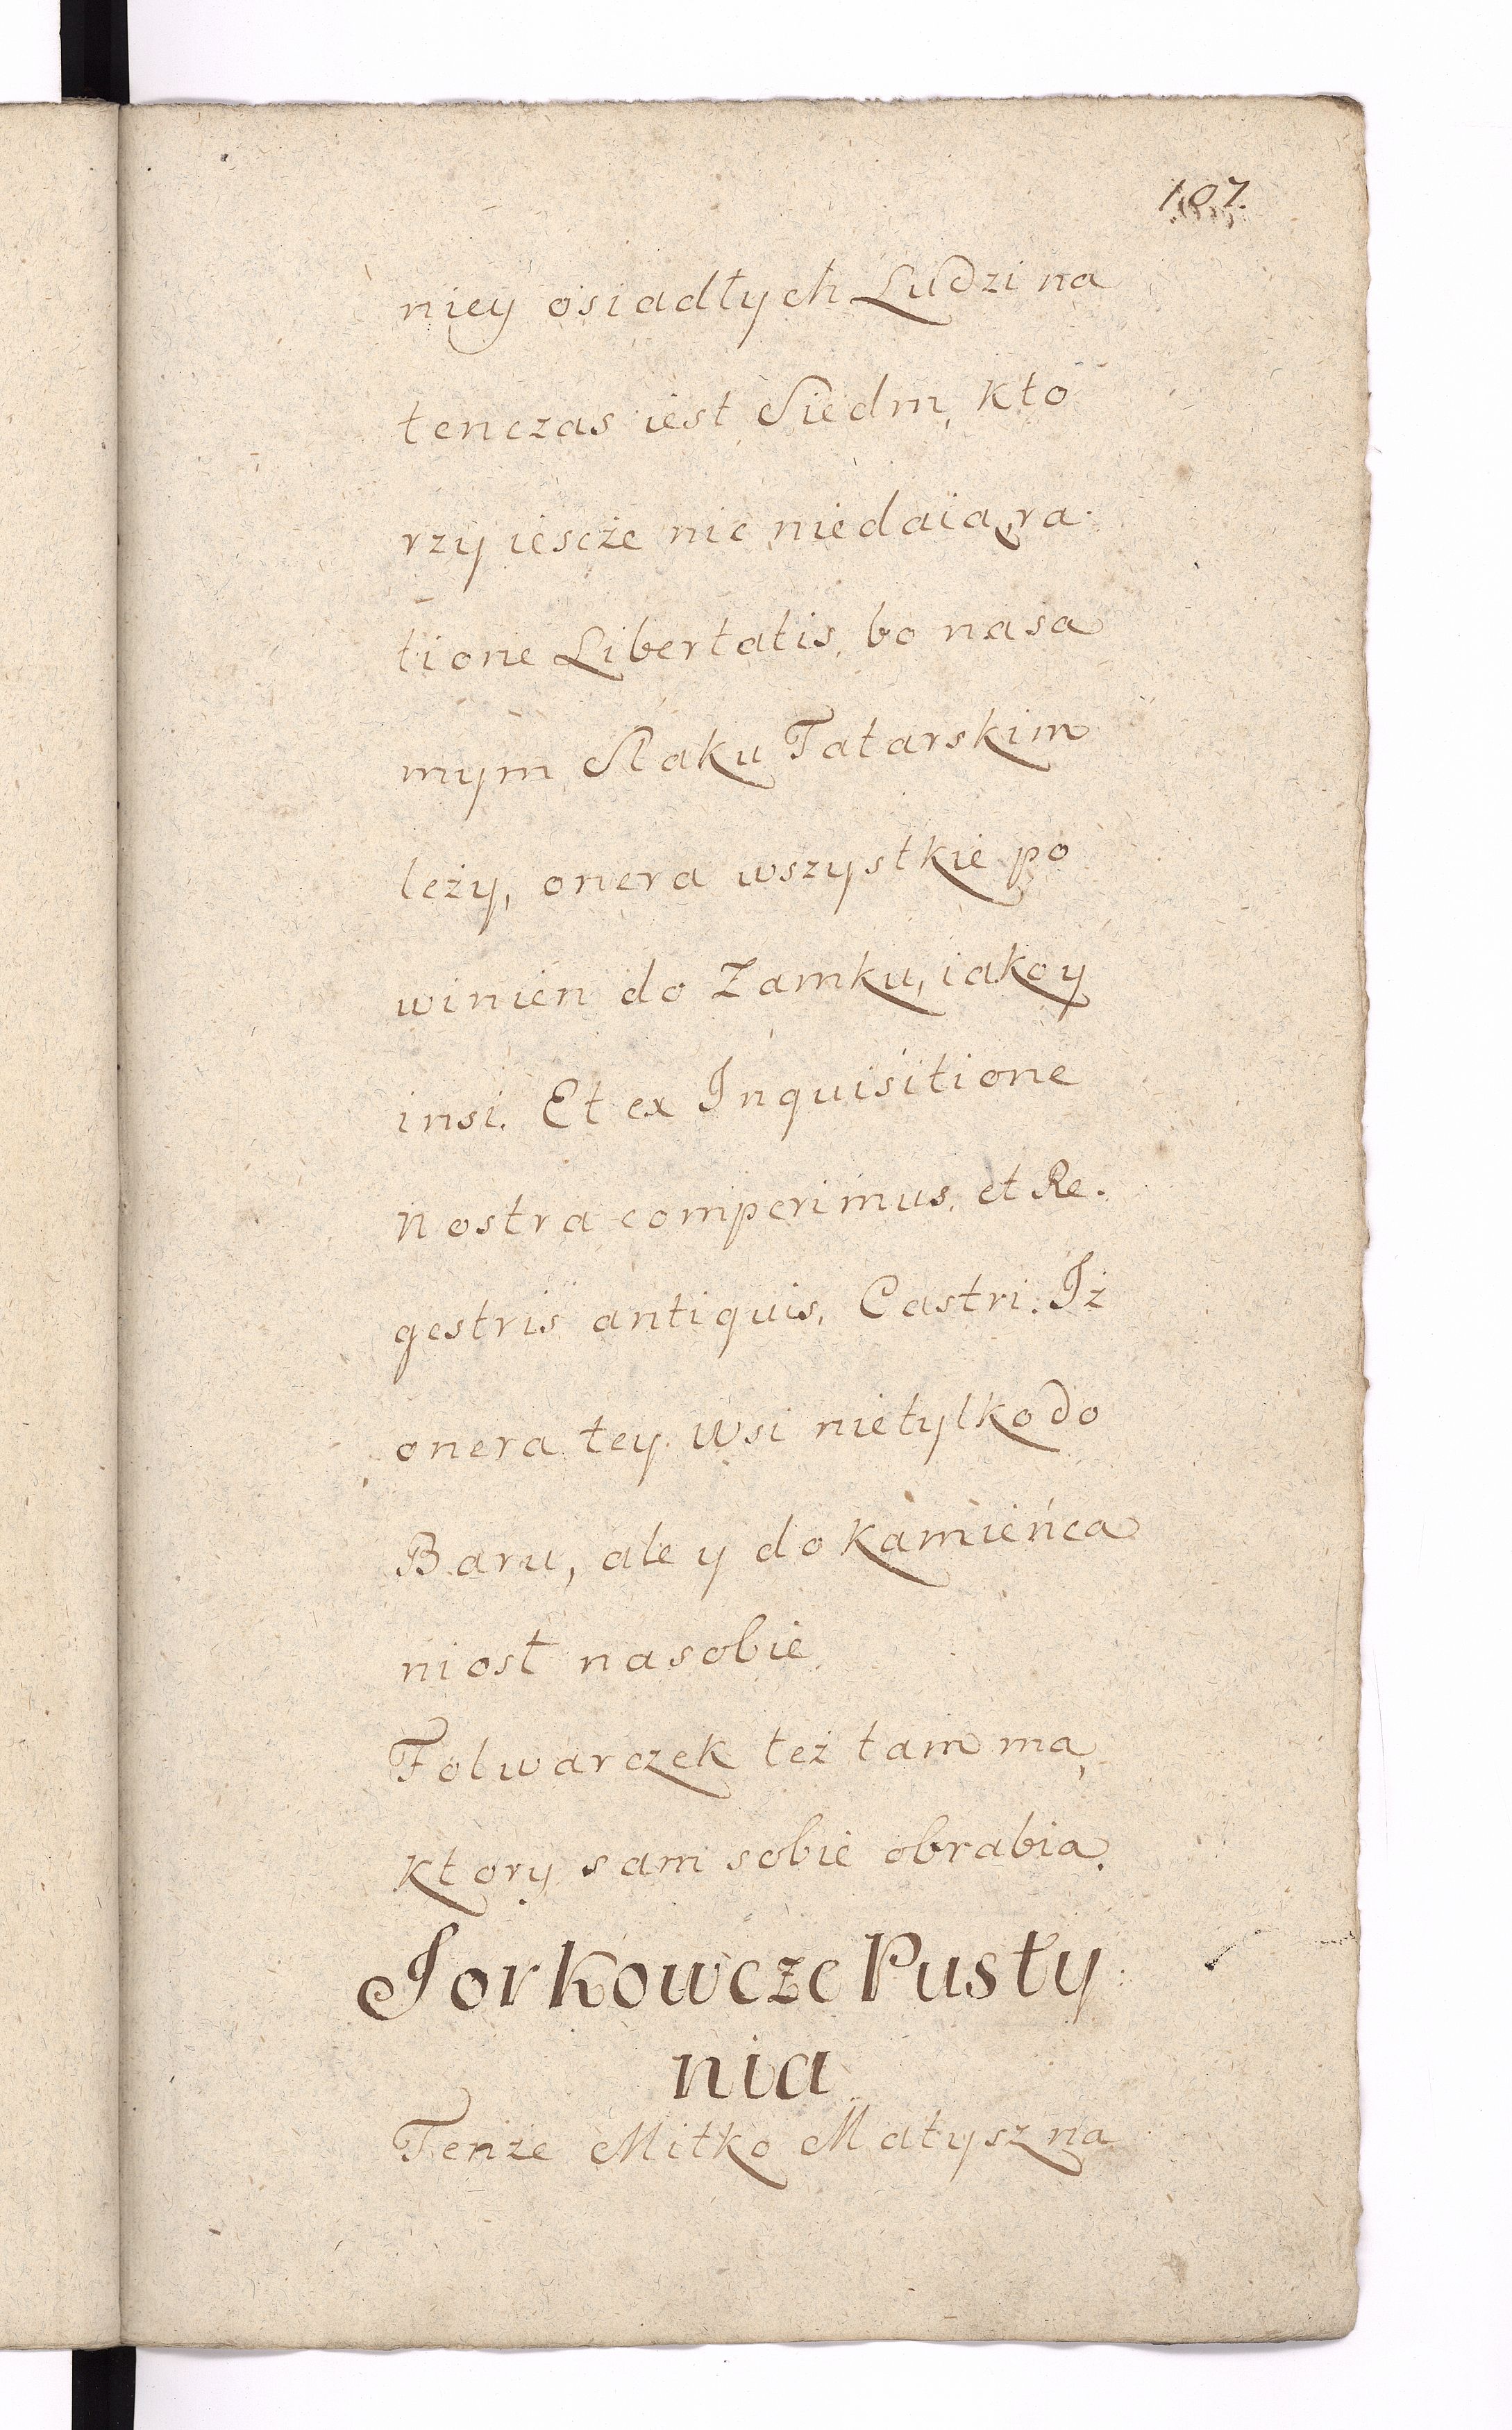 107.
niey osiadłych Ludzi na
tenczas iest Siedm, kto
rzy iescze nic niedaią, ra
tione Libertatis, bo nasa
mym Slaku Tatarskim
leży, onera wszystkie po
winien do Zamku, iako y
insi. Et ex Inquisitione
nostra comperimus, et Re.
gestris antiquis, Castri. Iż
onera tey wsi nietylko do
Baru, ale y do Kamieńca
niosł nasobie
Folwarczek też tam ma,
ktory sam sobie obrabia.
Jorkowcze Pusty
nia
Tenże Mitko Matysz na